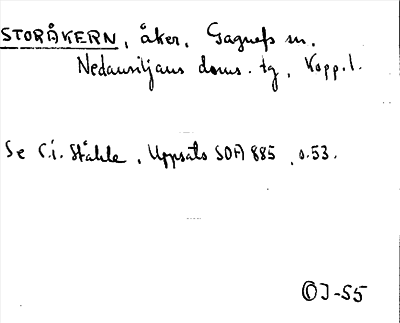 STORÅKERN, åker, Gagnefs sn.
Nedansiljans doms. tg, Kopp. l.
Se C.I. Ståhle, Uppsats SOA 885, s. 53.
OJ-55